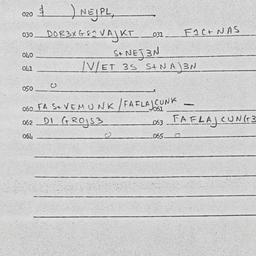 020 $ ) NEJPL,
030 DOR3XGS2VAJKT 031 F1C+NAS
040 S+NEJ3N
041 IV/ET 3S S+NAJ3N
050 0
060 FA S+VEMUNK/FAFLAJCUNK 061 —
062 DI GROJS3 063 FAFLAJCUNG3
064 0 065 0